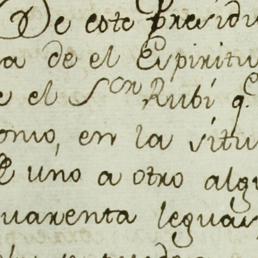 De este Presidi
a de el Espiritu
e el S.or Rubí q.e
onio, en la situ
è uno a otro algu
uarenta leguas